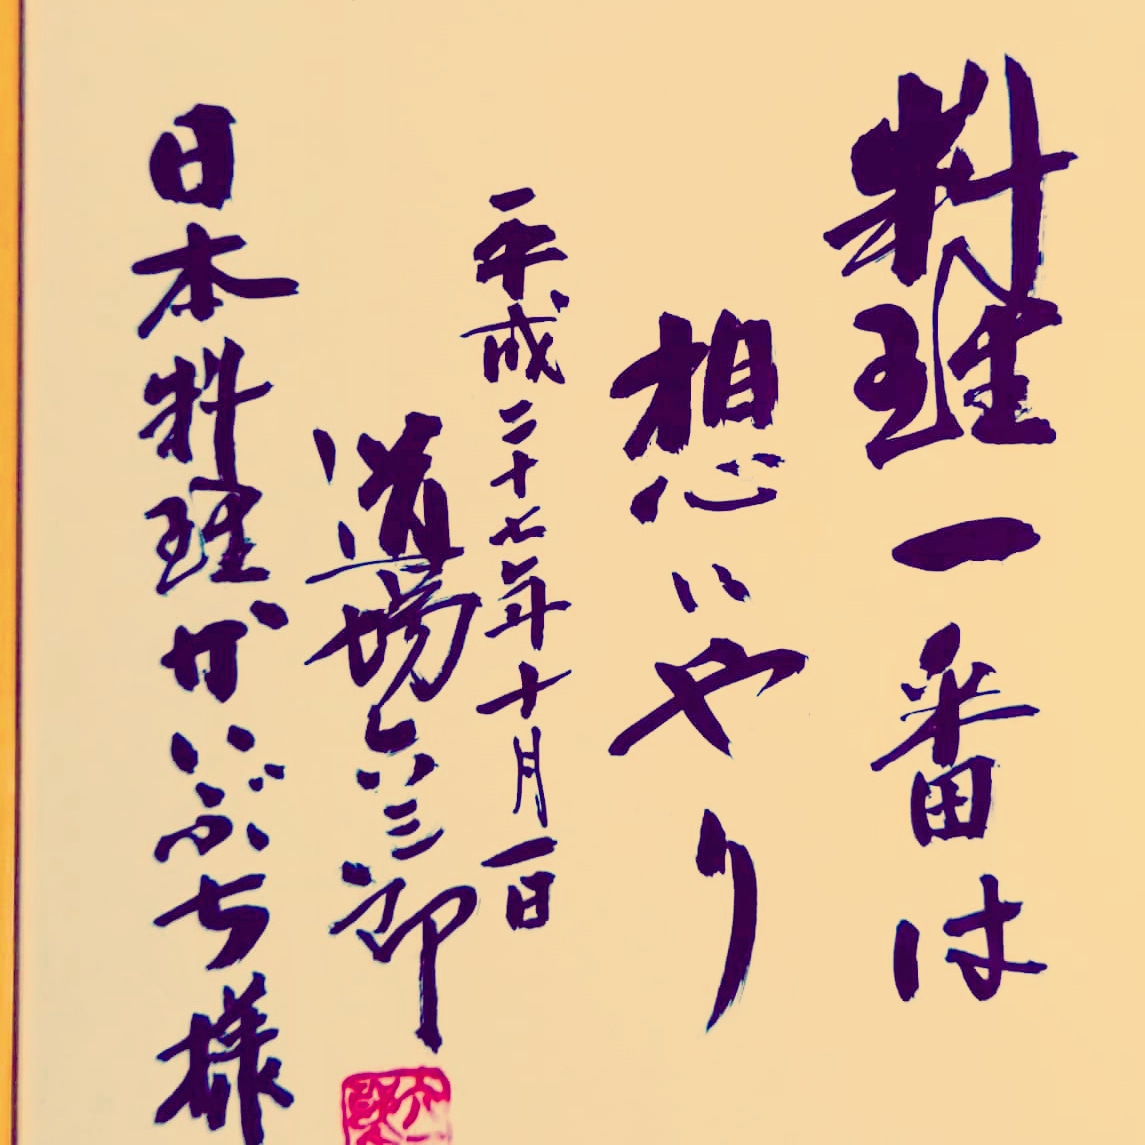 料理一番は
想いやり
平成二十七年十月一日
道場六三郎
日本料理かいぶち様